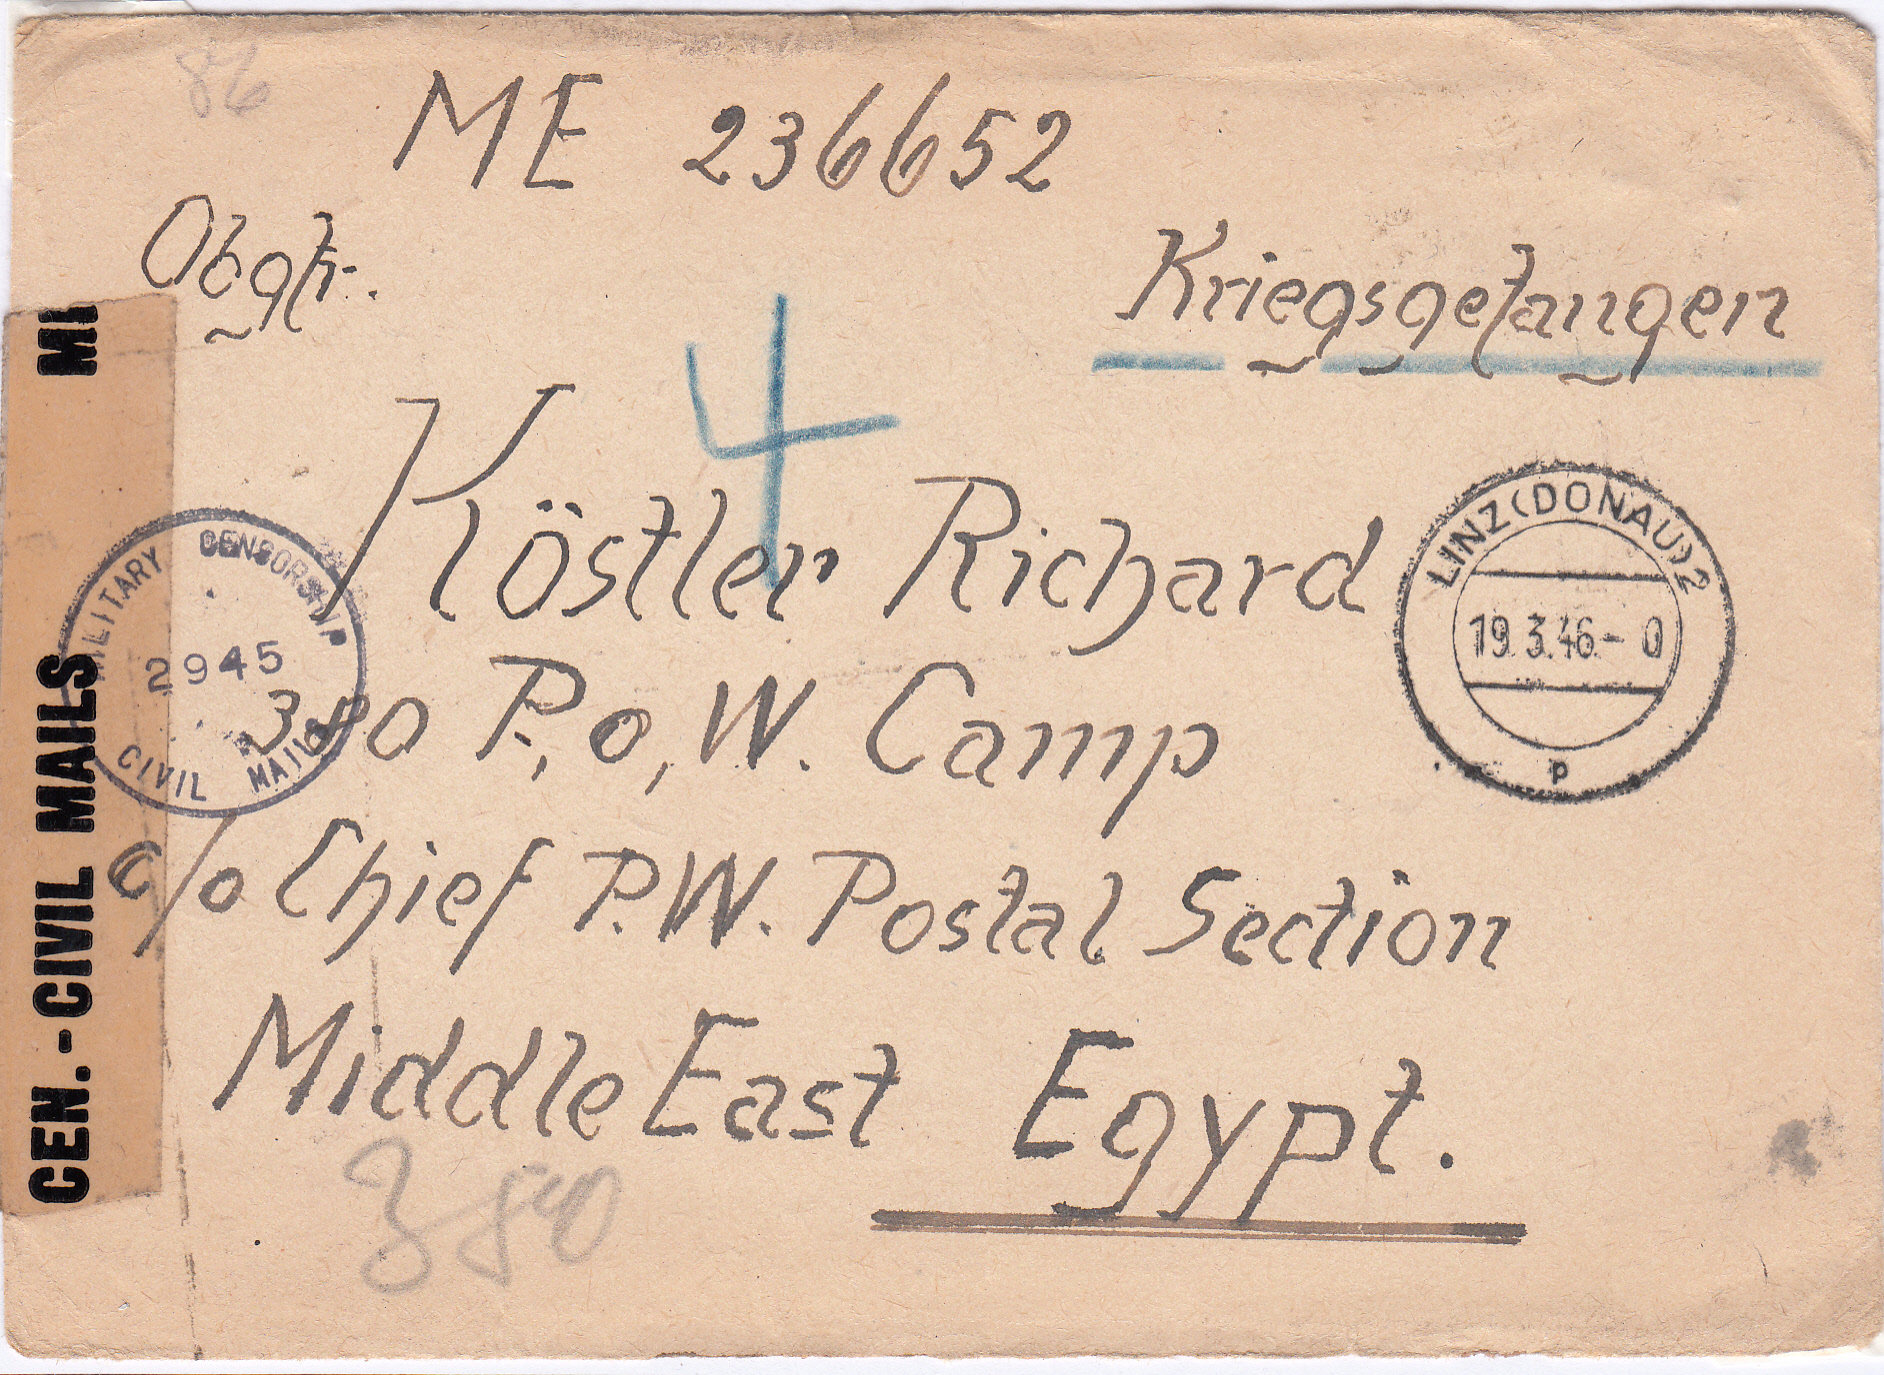 86
ME 236652
Obgfr.
Kriegsgefangen
4
Köstler Richard
LINZ (DONAU) 2
19.3.46 - 0
p
MILITARY CENSORSHIP
2945
CIVIL MAILS
380 P.o.W. Camp
c/o Chief P.W. Postal Section
Middle East Egypt.
380
MI
CEN.-CIVIL MAILS